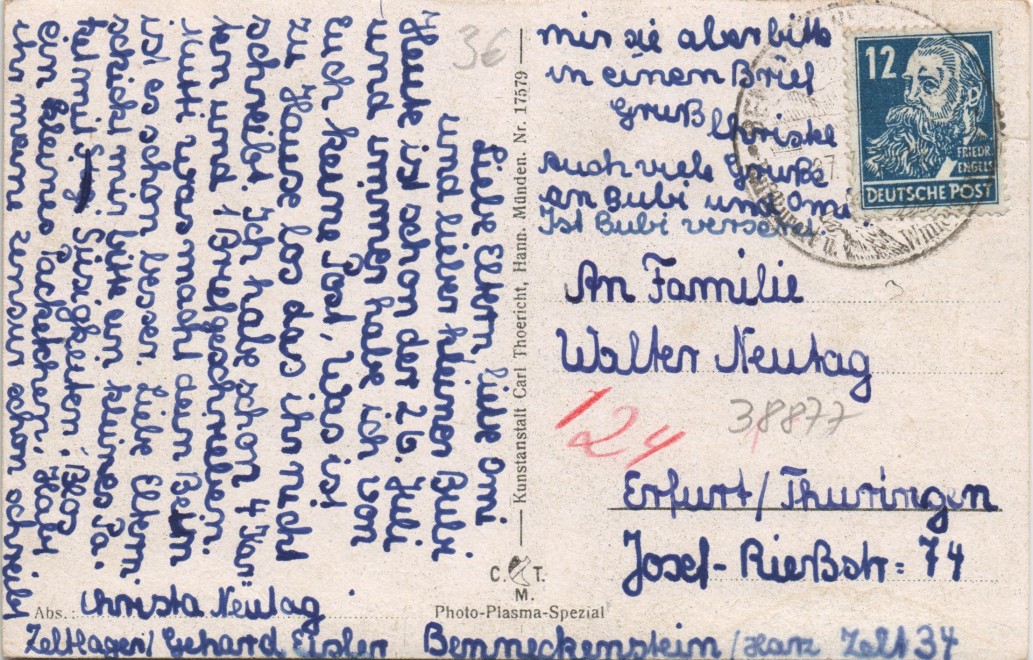 Liebe Eltern, liebe Omi
und lieber kleiner Bubi
Heute ist schon der 26. Juli
und immer habe ich von
Euch keine Post, Was ist
zu Hause los das ihr nicht
schreibt. Ich habe schon 4 Kar-
ten und 1 Brief geschrieben.
Mutti was macht dein Bein
ist es schon besser. Liebe Eltern
schickt mir bitte ein kleines Pa.
ket mit Süsigkeiten. Blos
ein kleines Packetchen. Habt
ihr meine zensur schon schreibt
mir sie aber bitte
in einen Brief
Gruß Christel
Auch viele Grüße
an Bubi und Omi
Ist Bubi versetzt
36
12
FRIEDR. ENGELS
DEUTSCHE POST
27.
Winter
An Familie
Walter Neutag
124
38877
Erfurt/Thüringen
Josef-Rießstr= 74
Kunstanstalt Carl Thoericht, Hann. Münden. Nr. 17579
C. T.
M.
Photo-Plasma-Spezial
Abs.: Christa Neutag
Zeltlager/Gehard Eisler Benneckenstein/Harz Zelt 34